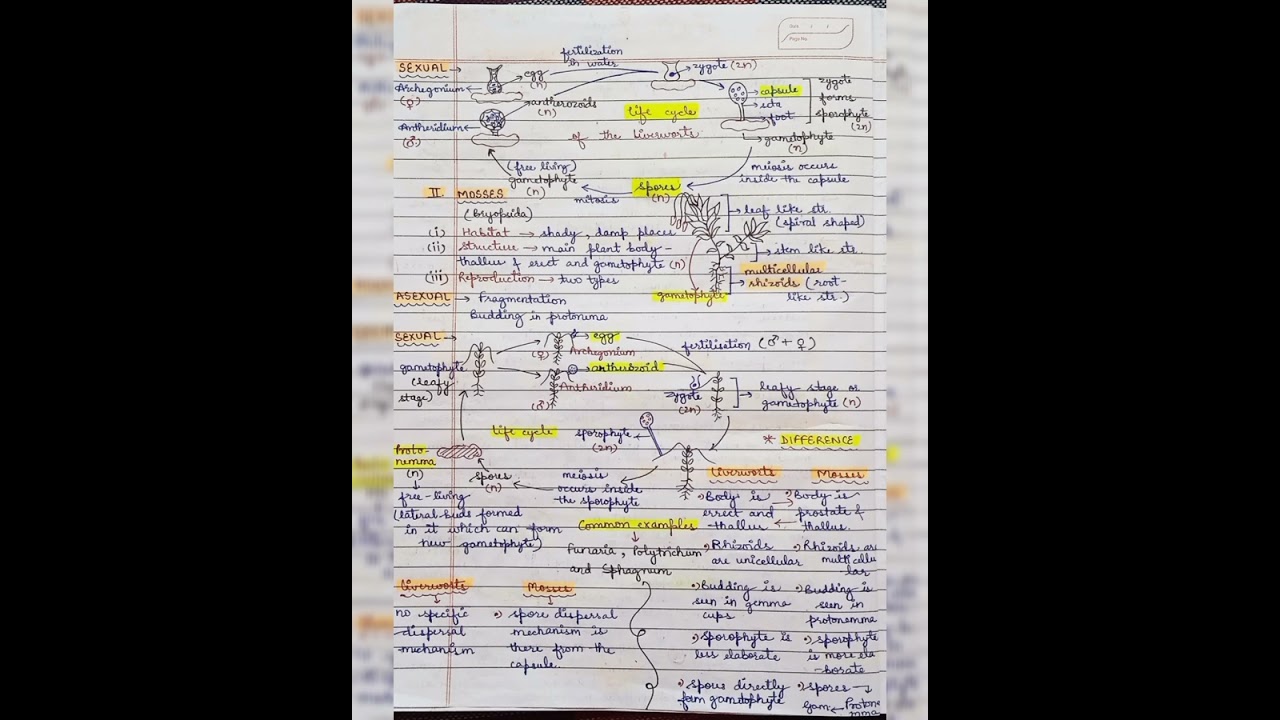 Date / /
Page No.
SEXUAL →
fertilization
in water
egg
(n)
zygote (2n)
Archegonium
(♀)
antherozoids
(n)
Antheridium
(♂)
life cycle
of the liverworts
capsule
seta
foot
zygote
forms
sporophyte
(2n)
gametophyte
(n)
(free living)
gametophyte
(n)
mitosis
spores
(n)
meiosis occurs
inside the capsule
II. MOSSES
(Bryopsida)
(i) Habitat → shady, damp places
(ii) Structure → main plant body -
thallus & erect and gametophyte (n)
(iii) Reproduction → two types
→ leaf like str.
(spiral shaped)
→ stem like str.
multicellular
→ rhizoids (root-
like str.)
gametophyte
ASEXUAL → Fragmentation
Budding in protonema
SEXUAL →
→ egg
(♀) Archegonium
→ antherozoid
Antheridium
(♂)
gametophyte
(leafy
stage)
fertilisation (♂ + ♀)
zygote
(2n)
→ leafy stage or
gametophyte (n)
life cycle
sporophyte
(2n)
Proto-
nemma
(n)
↓
free-living
(lateral buds formed
in it which can form
new gametophyte)
spores
(n)
meiosis
occurs inside
the sporophyte
Common examples
↓
Funaria, Polytrichum
and Sphagnum
* DIFFERENCE
Liverworts Mosses
• Body is • Body is
errect and prostate &
thallus thallus.
• Rhizoids • Rhizoids are
are unicellular multicellu
lar
• Budding is • Budding is
seen in gemma seen in
cups protonemma
• Sporophyte is • sporophyte
less elaborate is more ela
-borate
• Spous directly • Spores →
form gametophyte Gam ← Protone
mma
Liverworts Mosses
↓ ↓
no specific • spore dispersal
dispersal mechanism is
mechanism there from the
capsule.